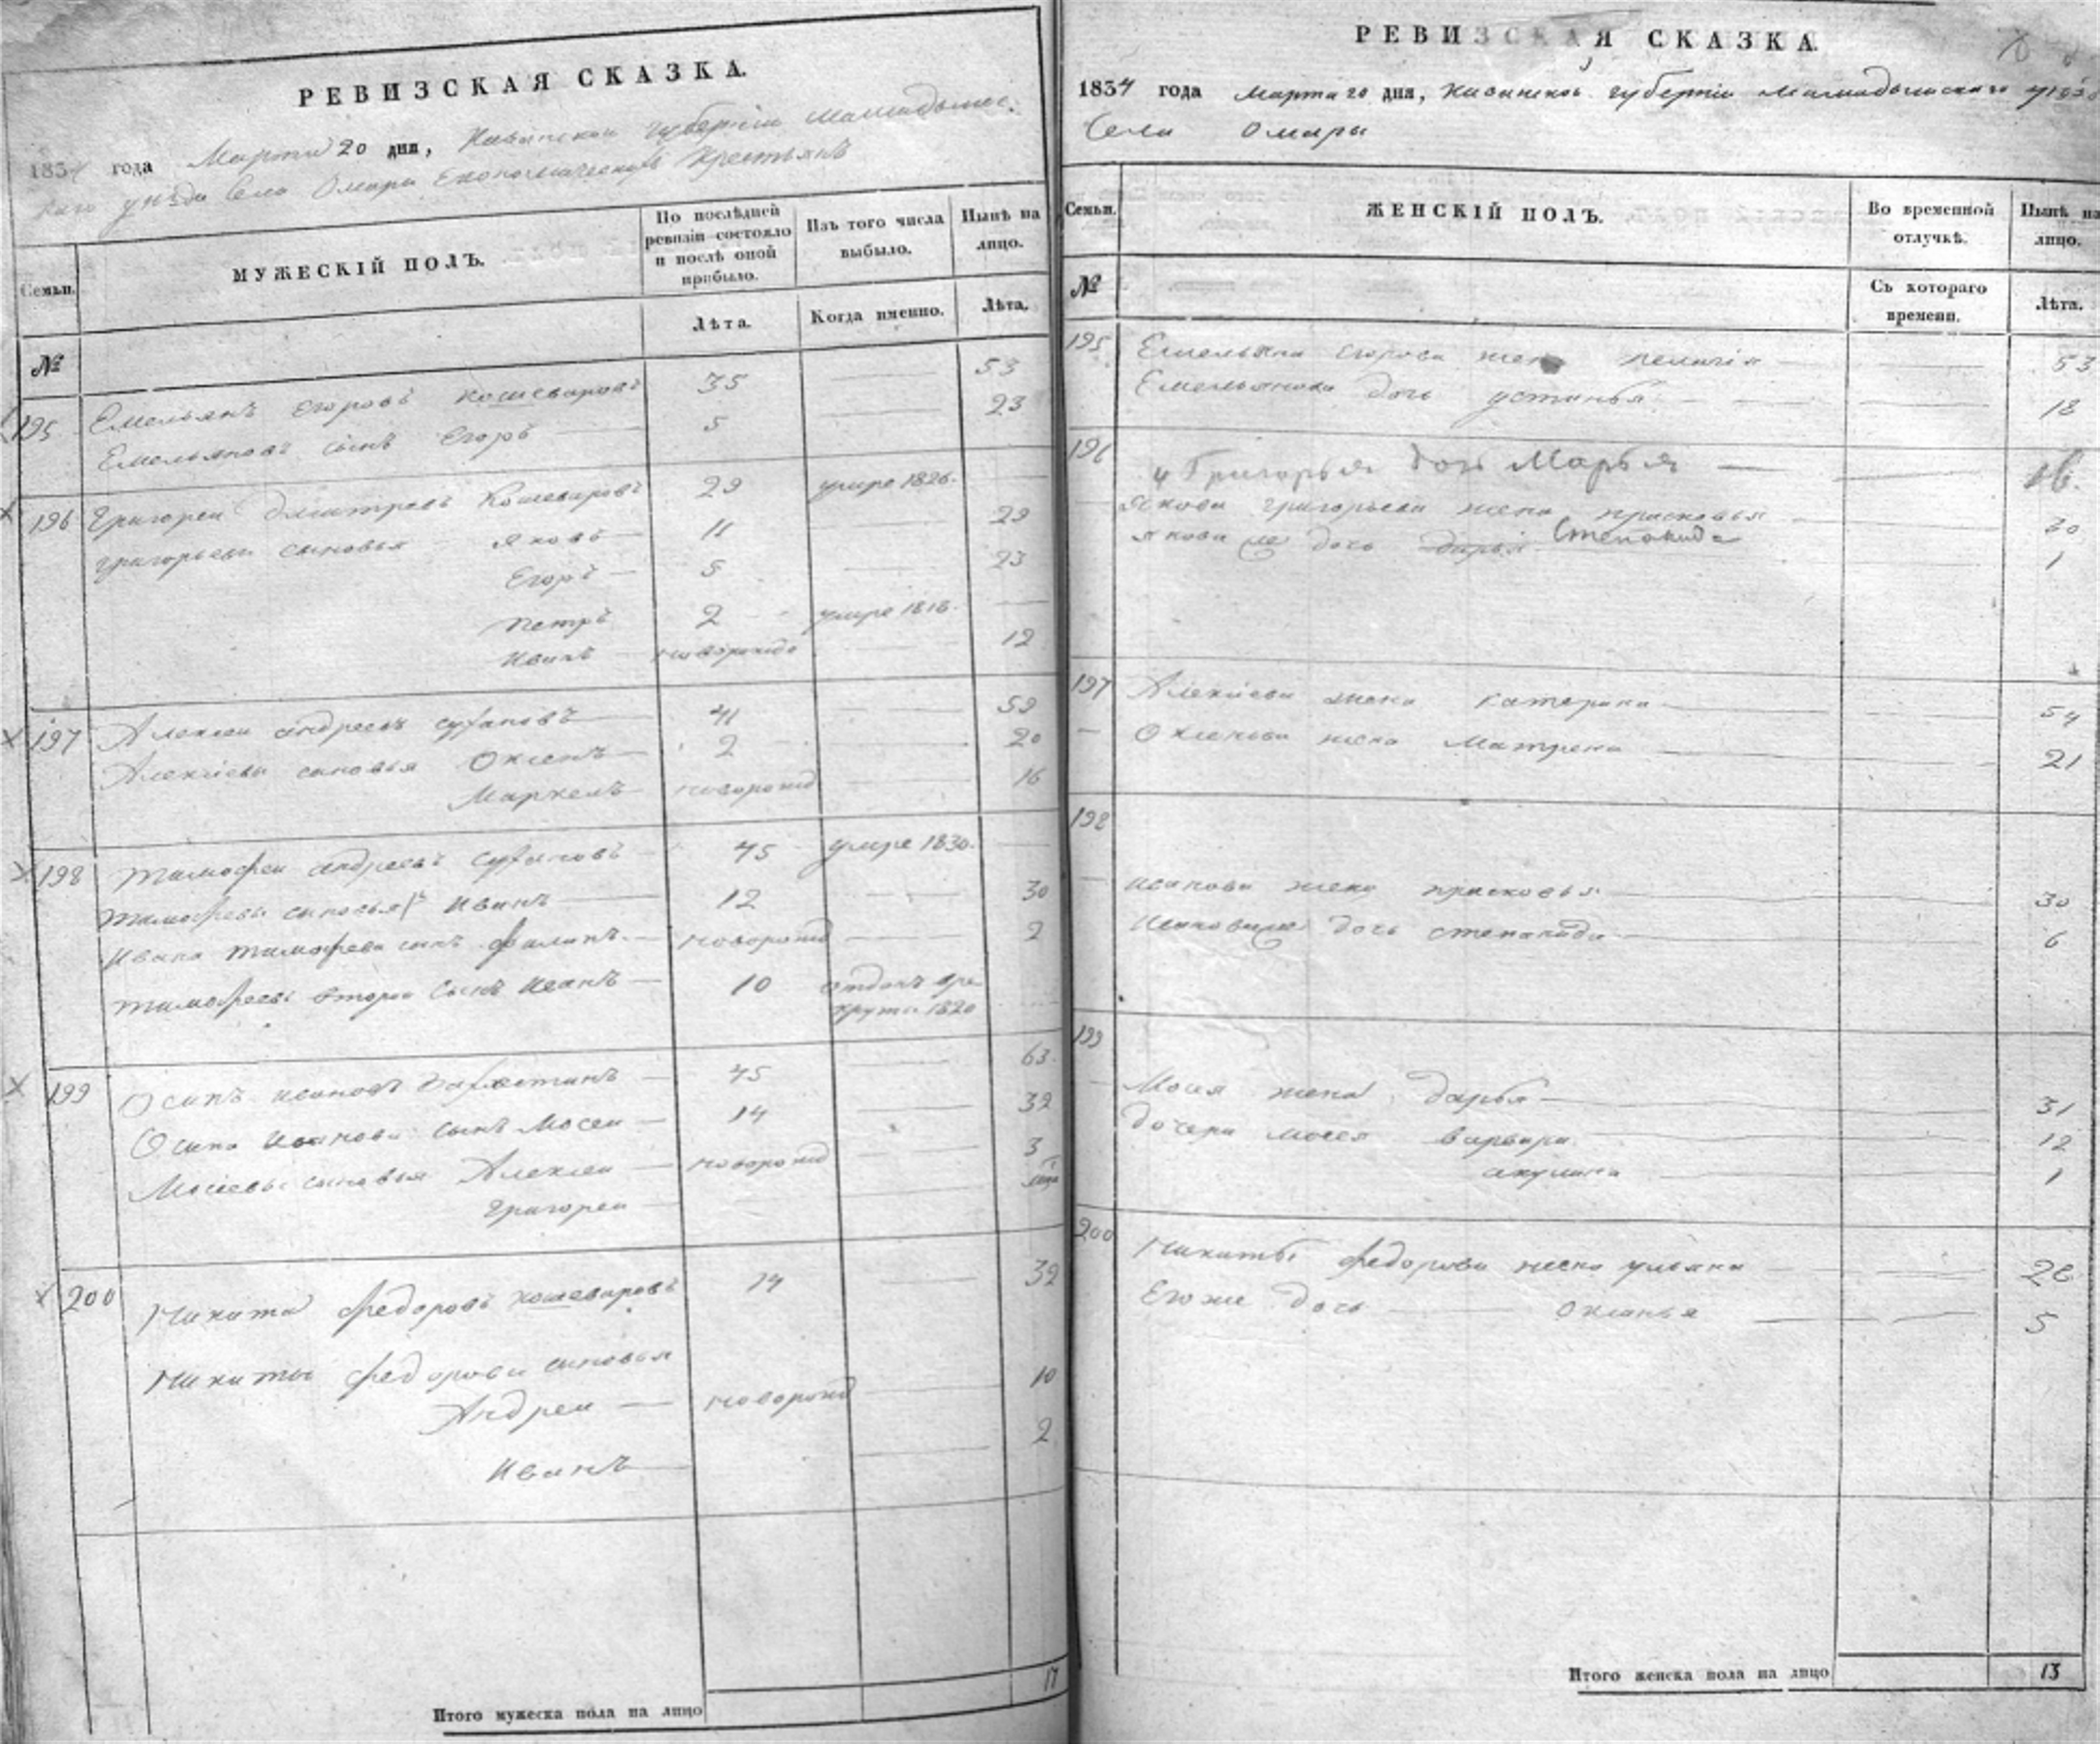 РЕВИЗСКАЯ СКАЗКА.
1834 года Марта 20 дня, Казанской губернии Мамадышс-
каго уезда Села Омары Економическихъ Крестьянъ
Семьи.
МУЖЕСКІЙ ПОЛЪ.
По послѣдней ревизіи состояло и послѣ оной прибыло.
Изъ того числа выбыло.
Нынѣ на лицо.
№
Лѣта.
Когда именно.
Лѣта.
195 Емельянъ Егоровъ Кошеваровъ 35 53
Емельяновъ сынъ Егоръ 5 23
196 Григореи Дмитревъ Кошеваровъ 29 умре 1826.
Григорьевы сыновья Яковъ 11 29
Егоръ 5 23
Петръ 2 умре 1818.
Иванъ новорожде 12
197 Алексеи Андреевъ 41 59
Алексіевы сыновья Оксенъ 2 20
Маркелъ новорожд 16
198 Тимофеи Андреевъ 45 умре 1830.
Тимофеевы сыновья Иванъ 12 30
Ивана Тимофеева сынъ Филипъ новорожд 2
Тимофеевъ второй Сынъ Иванъ 10 отданъ вре
круты 1820
199 Осипъ Ивановъ 45 63.
Осипа Иванова сынъ Мосеи 14 32
Мосіевы сыновья Алексеи новорожд 3
Григореи
200 Никита Федоровъ Кошеваровъ 14 32
Никиты Федорова сыновья
Андреи новорожд 10
Иванъ 2
Итого мужеска пола на лицо 17
РЕВИЗСКАЯ СКАЗКА
1834 года Марта 20 дня, Казанской губерніи Мамадышскаго уезда
Села Омары
Семьи.
ЖЕНСКІЙ ПОЛЪ.
Во временной отлучкѣ.
Нынѣ на лицо.
№
Съ котораго времени.
Лѣта.
195 Емельяна Егорова жена Пелагія 53
Емельянова дочь Устинья 18
196 Григорья дочь Марья 16.
Якова Григорьева жена Прасковья 30
Якова же дочь Степанида 1
197 Алексіева жена Катерина 54
Оксенова жена Матрена 21
198
Иванова жена Прасковья 30
Иванова же дочь Степанида 6
199
Мосея жена Дарья 31
Дочери Мосея Варвара 12
Акулина 1
200 Никиты Федорова жена Ульяна 28
Его же дочь Оксинья 5
Итого женска пола на лицо 13